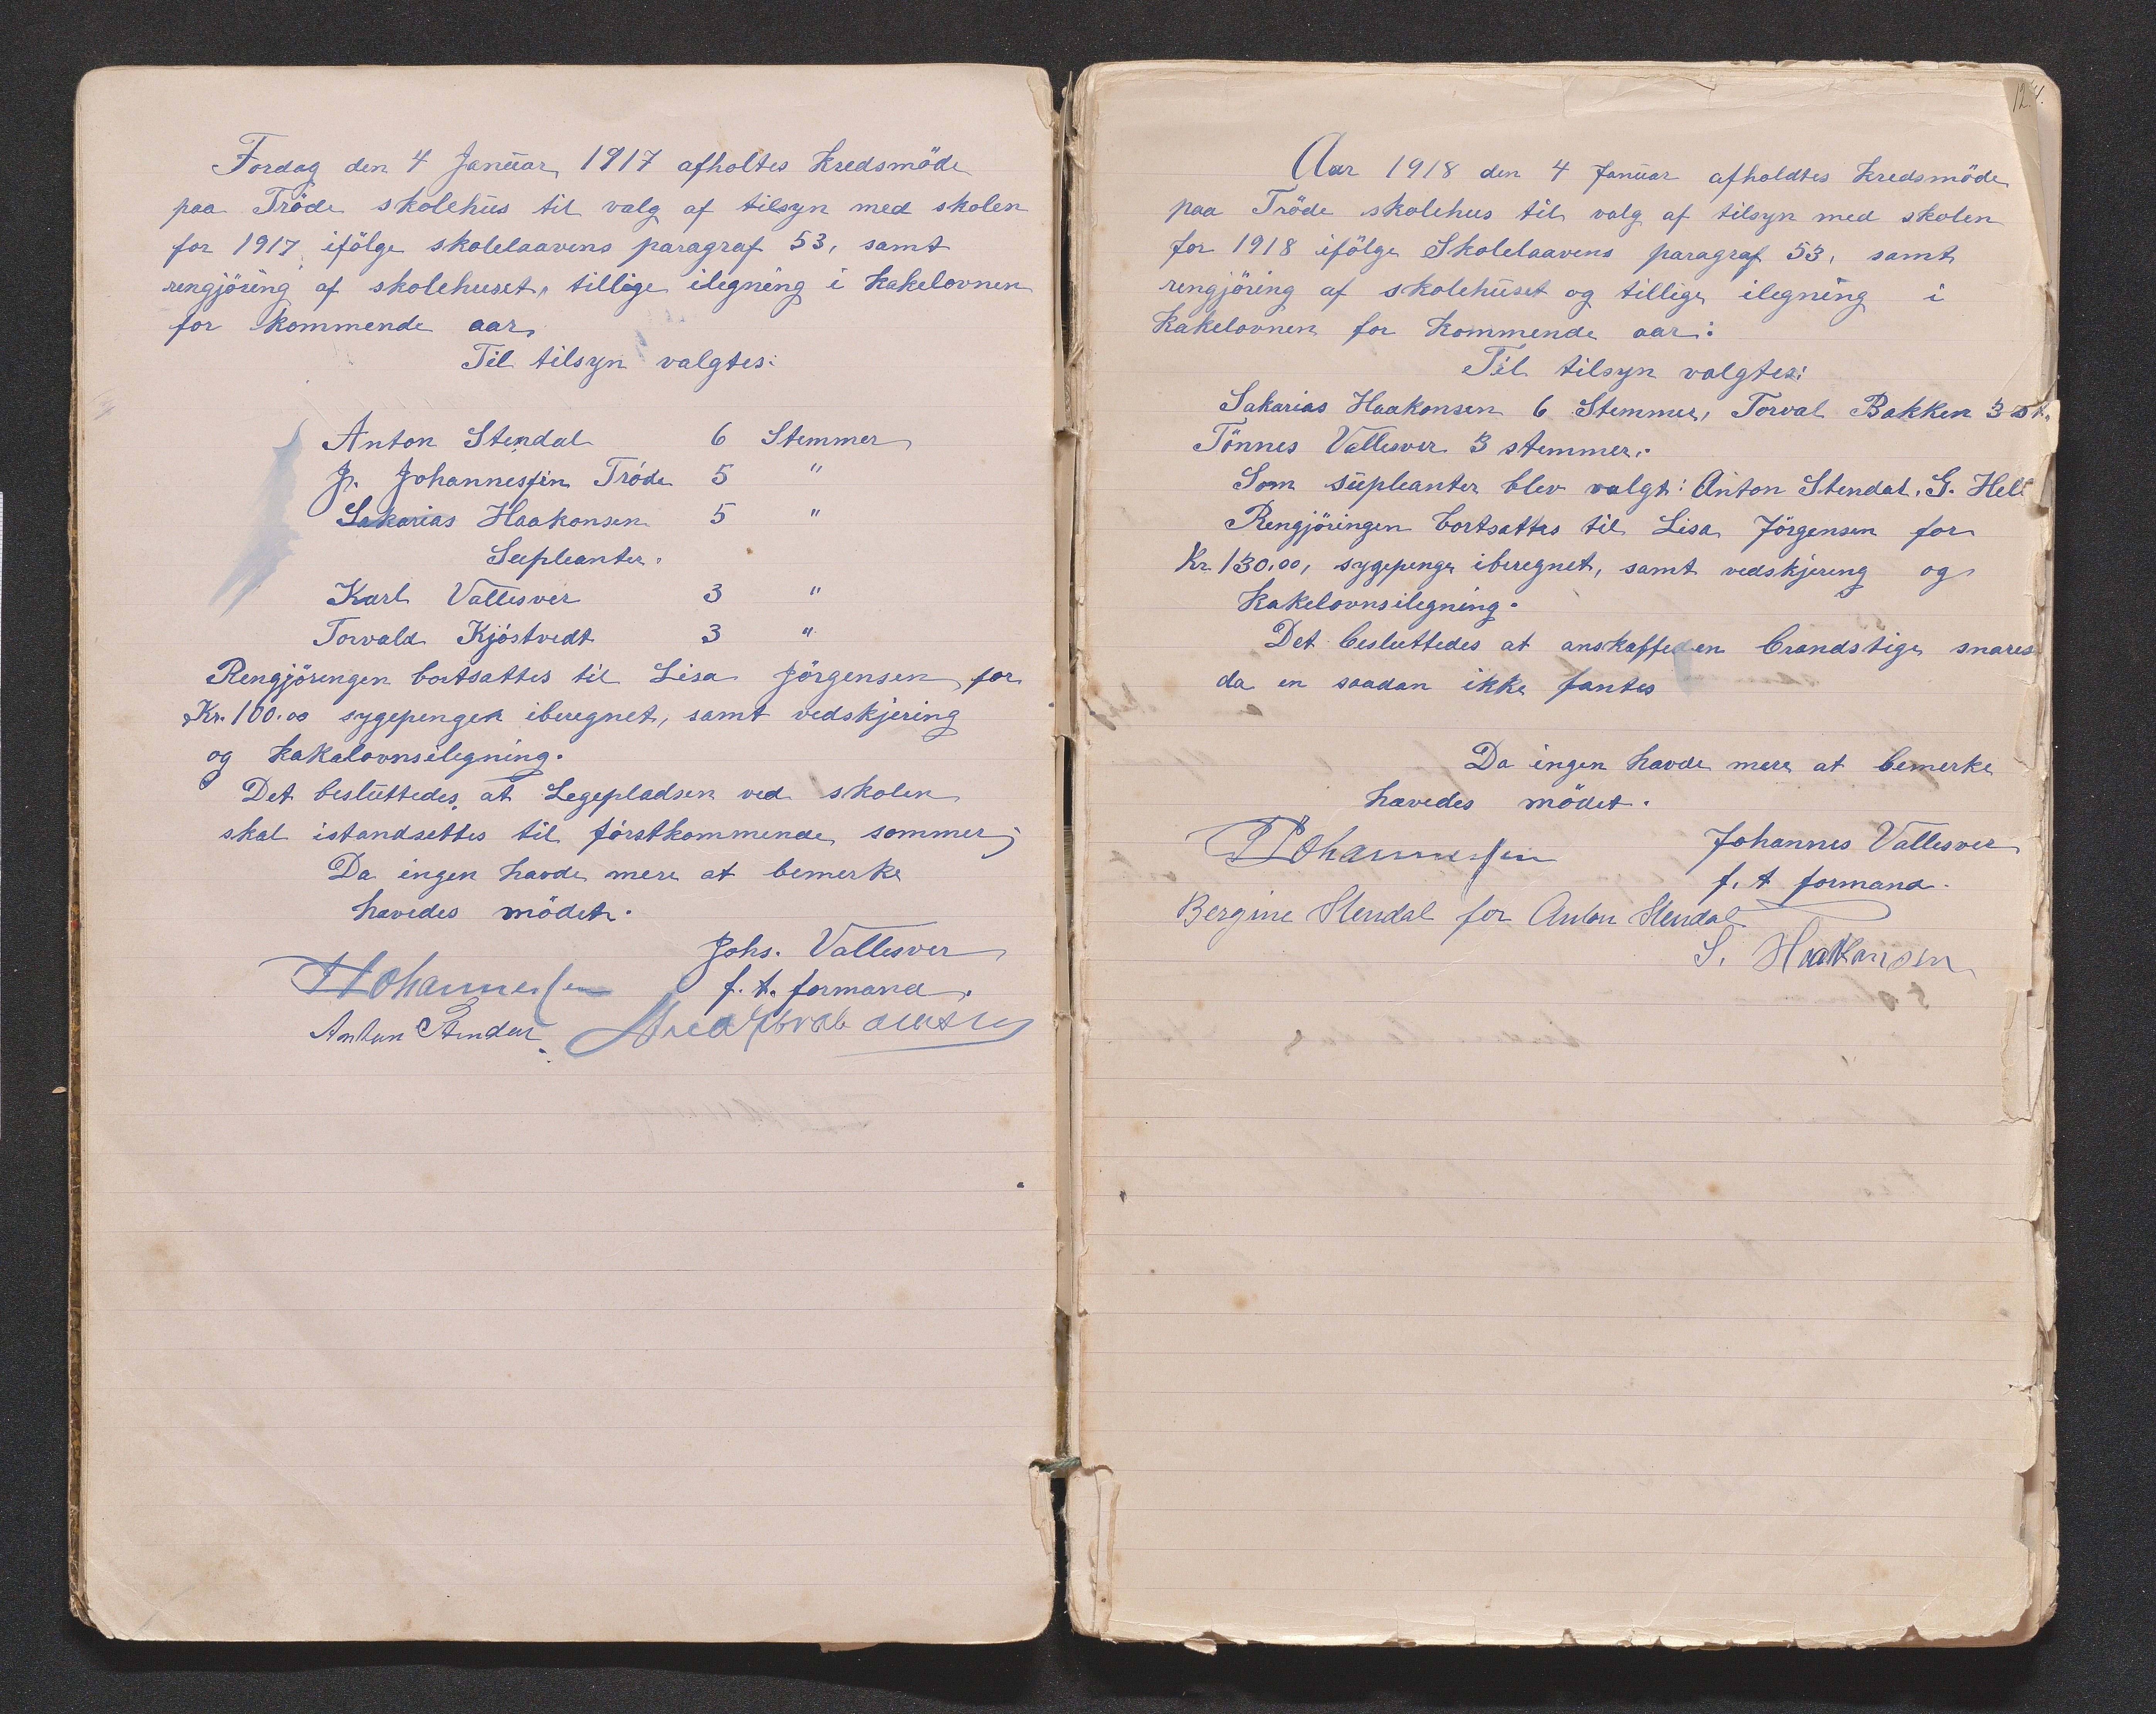 Fordag den 4 Januar 1917 afholtes Kredsmöde
paa Tröde skolehus til valg af tilsyn med skolen
for 1917 ifölge skolelaavens paragraf 53, samt
rengjöring af skolehuset, tillige ilegning i Kakelovnen
for Kommende aar,
Til tilsyn valgtes:
Anton Stendal 6 Stemmer
J. Johannessen Tröde 5 "
Sakarias Haakonsen 5 "
Supleanter.
Karl Vallesver 3 "
Torvald Kjöstvedt 3 "
Rengjöringen bortsattes til Lisa Jörgensen for
Kr. 100.00 sygepenger iberegnet, samt vedskjering
og Kakalovnsilegning.
Det besluttedes, at Legepladsen ved skolen
skal istandsettes til förstkommende sommer;
Da ingen havde mere at bemerke
hævedes mödet.
Johs. Vallesver
Johannessen f. t. formand.
Anton Stendal
124.
Aar 1918 den 4 Januar afholdtes Kredsmöde
paa Tröde skolehus til valg af tilsyn med skolen
for 1918 ifölge Skolelaavens paragraf 53, samt
rengjöring af skolehuset og tillige ilegning i
Kakelovnen for Kommende aar:
Til tilsyn valgtes:
Sakarias Haakonsen 6 Stemmer, Torval Bakken 3 st.
Tönnes Vallesver 3 stemmer.
Som supleanter blev valgt: Anton Stendal, G. Hell
Rengjöringen bortsattes til Lisa Jörgensen for
Kr. 130,00, sygepenge iberegnet, samt vedskjering og
Kakelovnsilegning.
Det besluttedes at anskaffe en brandstige snares
da en saadan ikke fantes
Da ingen havde mere at bemerke
hævedes mödet.
Johannessen Johannes Vallesver
f. t formand.
Bergine Stendal for Anton Stendal
S. Haakonsen